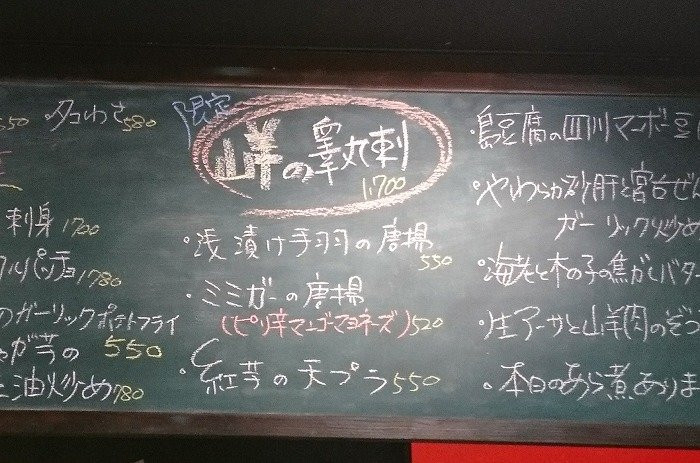 550
・タコわさ580
刺身1700
パッチョ1780
のガーリックポテトフライ
が芋の550
油炒め780
限定
山羊の睾丸刺
1.700
・浅漬け手羽の唐揚
550
・ミミガーの唐揚
(ピリ辛マンゴーマヨネーズ)520
・紅芋の天プラ550
・島豆腐の四川マーボー豆
・やわらか砂肝と宮古ぜん
ガーリック炒め
・海老と木の子の焦がしバター
・生アーサと山羊肉のぞう
・本日のあら煮ありま